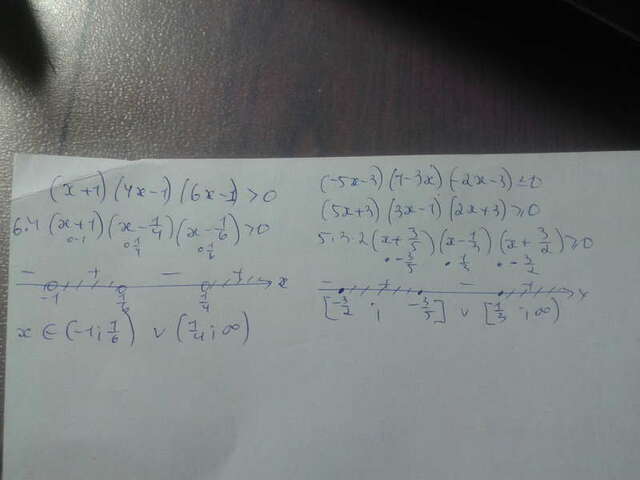 (x+1)(4x-1)(6x-1)>0
6·4(x+1)(x-1/4)(x-1/6)>0
0-1 0 1/4 0 1/6
- + - +
-1 1/6 1/4 x
x ∈ (-1; 1/6) ∨ (1/4; ∞)
(-5x-3)(1-3x)(-2x-3)≤0
(5x+3)(3x-1)(2x+3)≥0
5·3·2(x+3/5)(x-1/3)(x+3/2)≥0
• -3/5 • 1/3 • -3/2
- + - + x
[-3/2 ; -3/5] ∨ [1/3 ; ∞)